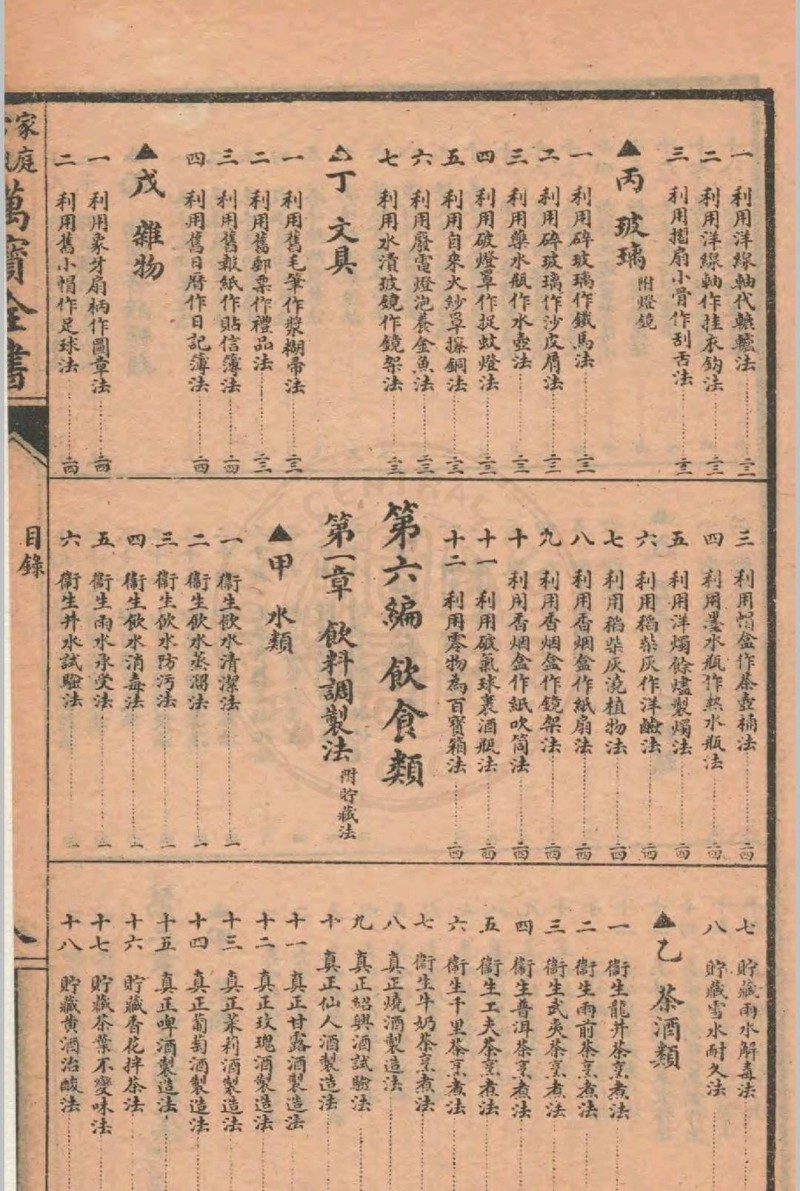 一 利用洋線軸代轆轤法 二三
二 利用洋線軸作挂衣鈎法 二三
三 利用摺扇小骨作刮舌法 二三
▲丙 玻璃 附燈鏡
一 利用碎玻璃作鐵馬法 二三
二 利用碎玻璃作沙皮屑法 二三
三 利用藥水瓶作水壺法 二三
四 利用破燈罩作捉蚊燈法 二三
五 利用自來火紗罩擦銅法 二三
六 利用廢電燈泡養金魚法 二三
七 利用水漬玻鏡作鏡架法 二三
△丁 文具
一 利用舊毛筆作漿糊帚法 二三
二 利用舊郵票作禮品法 二三
三 利用舊報紙作貼信簿法 二四
四 利用舊日曆作日記簿法 二四
▲戊 雜物
一 利用象牙扇柄作圖章法 二四
二 利用舊小帽作足球法 二四
三 利用帽盒作茶壺桶法 二四
四 利用墨水瓶作熱水瓶法 二四
五 利用洋燭餘燼製燭法 二四
六 利用稻柴灰作洋鹼法 二四
七 利用稻柴灰澆植物法 二四
八 利用香烟盒作紙扇法 二四
九 利用香烟盒作鏡架法 二四
十 利用香烟盒作紙吹筒法 二四
十一 利用破氣球裹酒瓶法 二四
十二 利用零物為百寶箱法 二四
第六編 飲食類
第一章 飲料調製法 附貯藏法
▲甲 水類
一 衞生飲水清潔法 一
二 衞生飲水蒸溜法 一
三 衞生飲水防污法 一
四 衞生飲水消毒法
五 衞生雨水承受法
六 衞生井水試驗法
七 貯藏雨水解毒法
八 貯藏雪水耐久法
▲乙 茶酒類
一 衞生龍井茶烹煮法
二 衞生雨前茶烹煮法
三 衞生武夷茶烹煮法
四 衞生普洱茶烹煮法
五 衞生工夫茶烹煮法
六 衞生千里茶烹煮法
七 衞生牛奶茶烹煮法
八 真正燒酒製造法
九 真正紹興酒試驗法
十 真正仙人酒製造法
十一 真正甘露酒製造法
十二 真正玫瑰酒製造法
十三 真正茉莉酒製造法
十四 真正葡萄酒製造法
十五 真正啤酒製造法
十六 貯藏香花拌茶法
十七 貯藏茶葉不變味法
十八 貯藏黄酒治酸法
家庭
萬寶全書
目錄
八